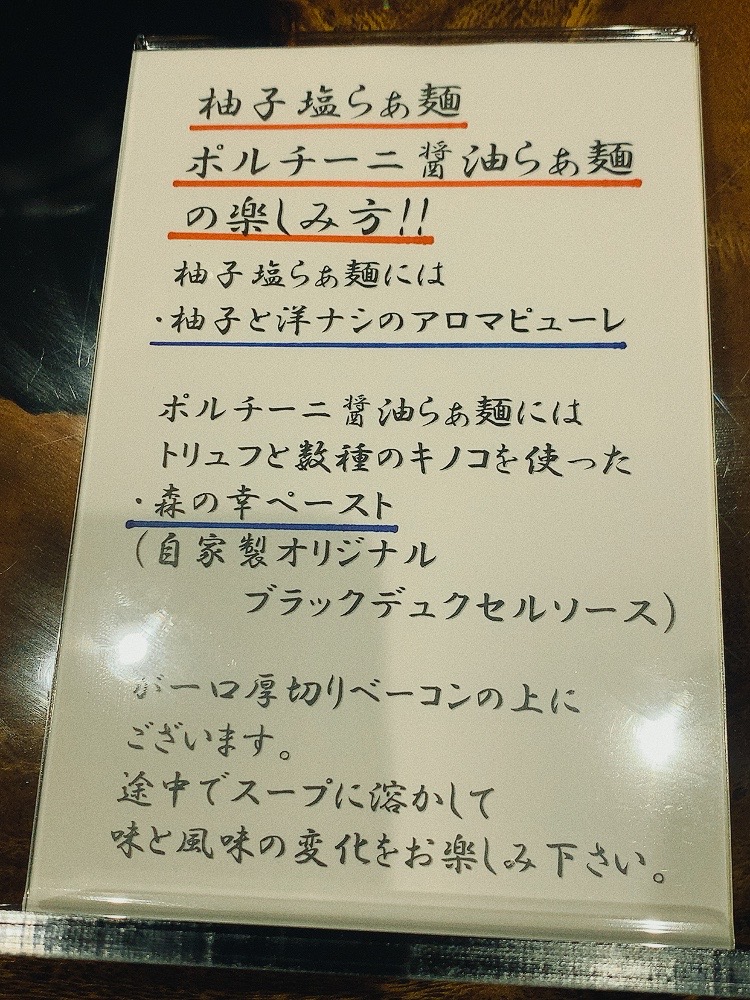 柚子塩らぁ麺
ポルチーニ醤油らぁ麺
の楽しみ方!!
柚子塩らぁ麺には
・柚子と洋ナシのアロマピューレ
ポルチーニ醤油らぁ麺には
トリュフと数種のキノコを使った
・森の幸ペースト
(自家製オリジナル
ブラックデュクセルソース)
が一口厚切りベーコンの上に
ございます。
途中でスープに溶かして
味と風味の変化をお楽しみ下さい。